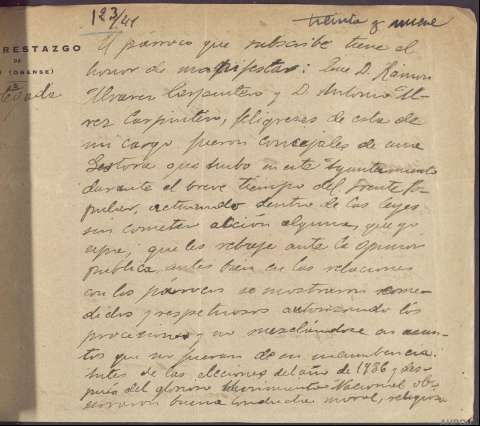 123/41
treinta y nueve
RESTAZGO
DE
(ORENSE)
El párroco que subscribe tiene el
honor de manifestar: Que D. Ramón
Alvarez Carpintero y D. Antonio Al-
rez Carpintero, feligreses de esta de
mi cargo fueron concejales de una
Gestora que hubo en este Ayuntamiento
durante el breve tiempo del frente Po-
pular, actuando dentro de las leyes
sin cometer acción alguna, que yo
sepa, que les rebaje ante la opinion
publica, antes bien en las relaciones
con los párrocos se mostraron come-
didos y respetuosos autorizando los
procesiones y no mezclándose en asun-
tos que no fueran de su incumbencia.
Antes de las elecciones del año de 1936 y des-
pués del glorioso Movimiento Nacional obs
servaron buena conducta moral, religiosa